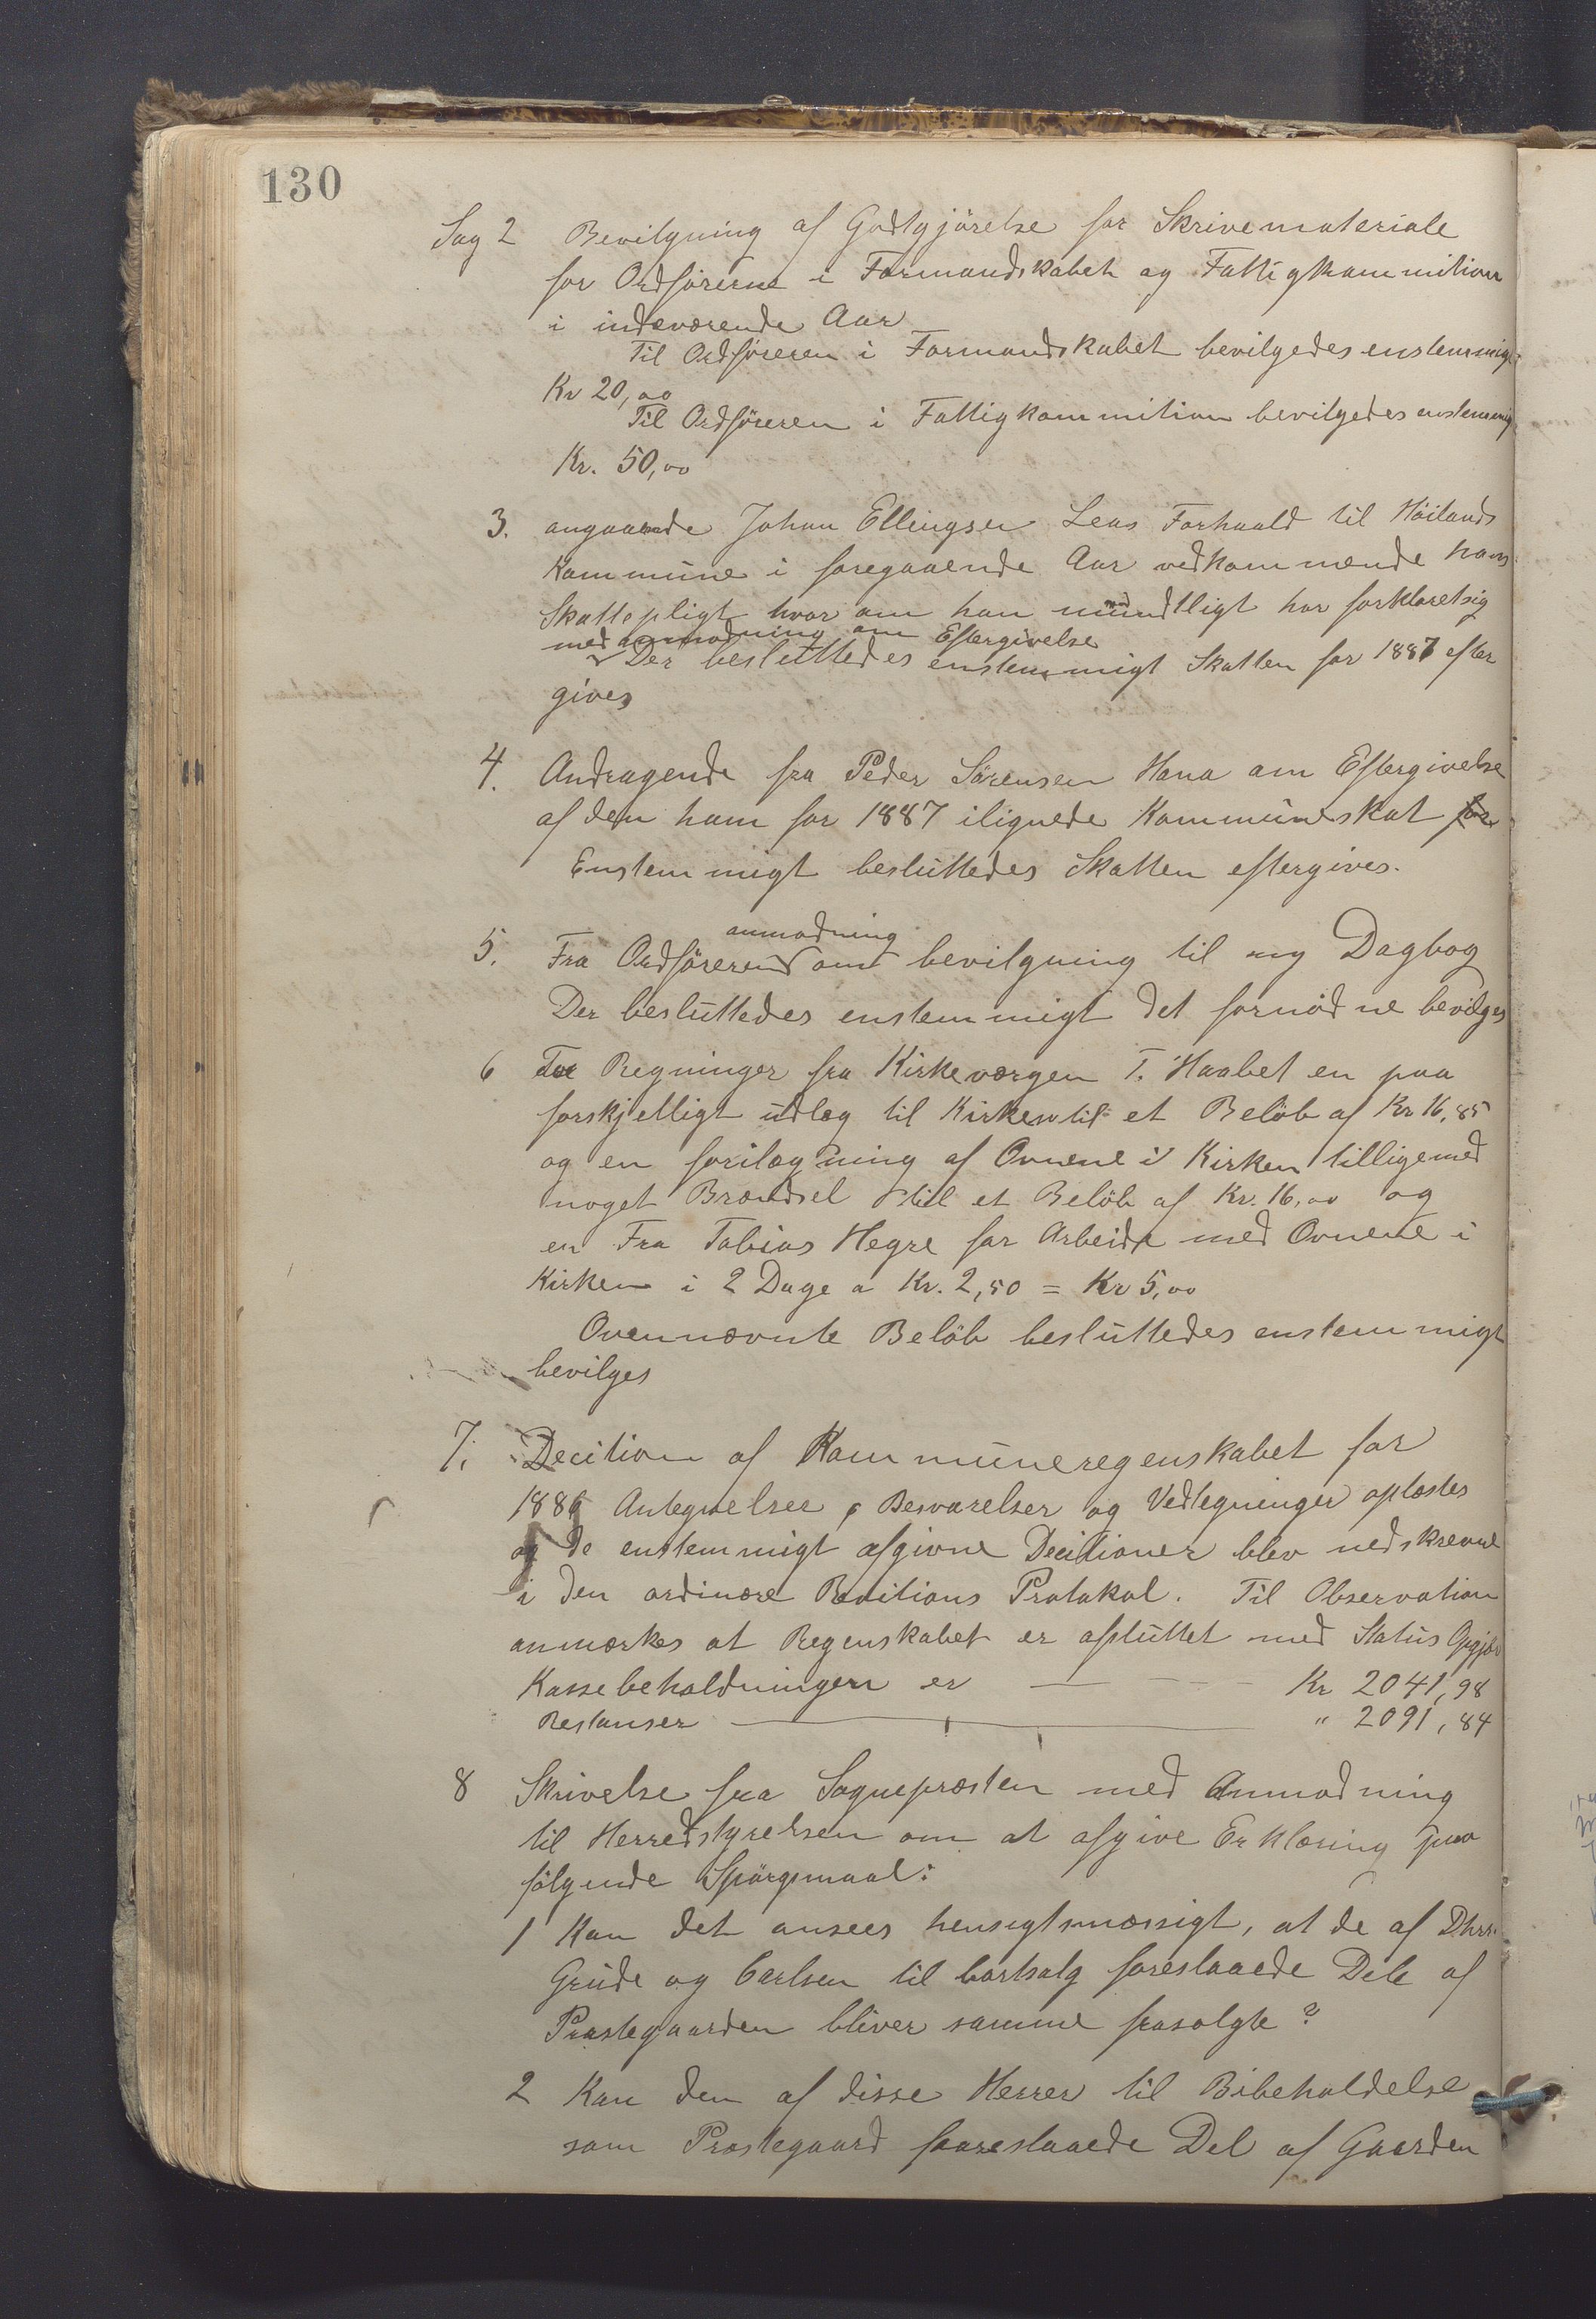 130
Sag 2 Bevilgning af Godtgjörelse for Skrivemateriale
for Ordförerne i Formandskabet og Fattigkommition
i indeværende Aar
Til Ordföreren i Formandskabet bevilgedes enstemmigt
Kr 20,00
Til Ordföreren i Fattigkommition bevilgedes enstemmig
Kr. 50,00
3. angaaende Johan Ellingsen Leas Forhold til Höilands
Kommune i foregaaende Aar vedkommende hans
Skattepligt hvor om han mundtligt har forklaret sig
med anmodning om Eftergivelse
Der besluttedes enstemmigt Skatten for 1887 efter
gives
4. Andragende fra Peder Sörensen Hana om Eftergivelse
af den ham for 1887 ilignede Kommuneskat for
Enstemmigt besluttedes Skatten eftergives.
anmodning
5. Fra Ordföreren om bevilgning til ny Dagbog
Der besluttedes enstemmigt det fornödne bevilges
6 To Regninger fra Kirkeværgen T. Haabet en paa
forskjelligt udlæg til Kirken til et Belöb af Kr 16,85
og en for ilægning af Ovnene i Kirken tilligemed
noget Brændsel til et Belöb af Kr. 16,00 og
en Fra Tobias Hegre for Arbeide med Ovnene i
Kirken i 2 Dage a Kr. 2,50 = Kr 5,00
Ovennævnte Belöb besluttedes enstemmigt
bevilges
7. Decition af Kommuneregenskabet for
1886 Antegnelser, Besvarelser og Vedtegninger oplæstes
og de enstemmigt afgivne Decitioner blev nedskrevne
i den ordinære Revitions Protokol. Til Observation
anmærkes at Regenskabet er afsluttet med Status
Kassebeholdningen er — — — Kr 2041,98
Restanser — " 2091,84
8 Skrivelse fra Sognepræsten med Anmodning
til Herredstyrelsen om at afgive Erklæring paa
fölgende Spörgsmaal:
1 Kan det ansees hensigtsmæssigt, at de af Dhrr.
Grude og Carlsen til bortsalg foreslaaede Dele af
Præstegaarden bliver samme frasolgte?
2 Kan den af disse Herrer til Bibeholdelse
som Præstegaard foareslaaede Del af Gaarden